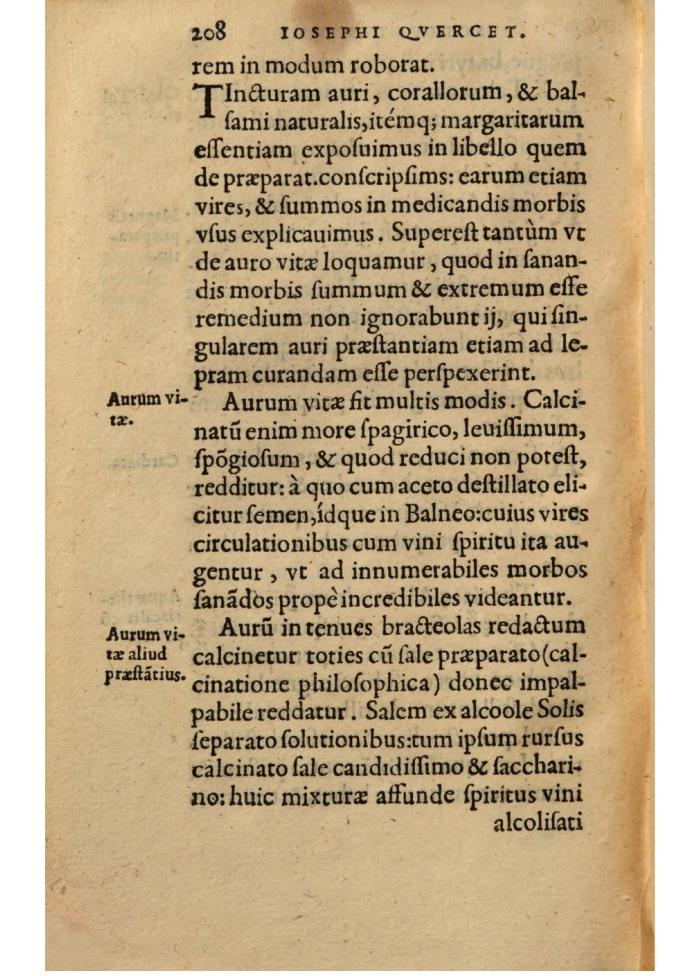 208 IOSEPHI QVERCET.
rem in modum roborat.
TIncturam auri, corallorum, & bal-
ſami naturalis, itémq; margaritarum
eſſentiam expoſuimus in libello quem
de præparat. conſcripſims: earum etiam
vires, & ſummos in medicandis morbis
vſus explicauimus. Supereſt tantùm vt
de auro vitæ loquamur, quod in ſanan-
dis morbis ſummum & extremum eſſe
remedium non ignorabunt ij, qui ſin-
gularem auri præſtantiam etiam ad le-
pram curandam eſſe perſpexerint.
Aurum vi-
tæ.
Aurum vitæ fit multis modis. Calci-
natū enim more ſpagirico, leuiſſimum,
ſpōgioſum, & quod reduci non poteſt,
redditur: à quo cum aceto deſtillato eli-
citur ſemen, ídque in Balneo: cuius vires
circulationibus cum vini ſpiritu ita au-
gentur, vt ad innumerabiles morbos
ſanādos propè incredibiles videantur.
Aurum vi-
tæ aliud
præſtātius.
Aurū in tenues bracteolas redactum
calcinetur toties cū ſale præparato (cal-
cinatione philoſophica) donec impal-
pabile reddatur. Salem ex alcoole Solis
ſeparato ſolutionibus: tum ipſum rurſus
calcinato ſale candidiſſimo & ſacchari-
no: huic mixturæ affunde ſpiritus vini
alcoliſati